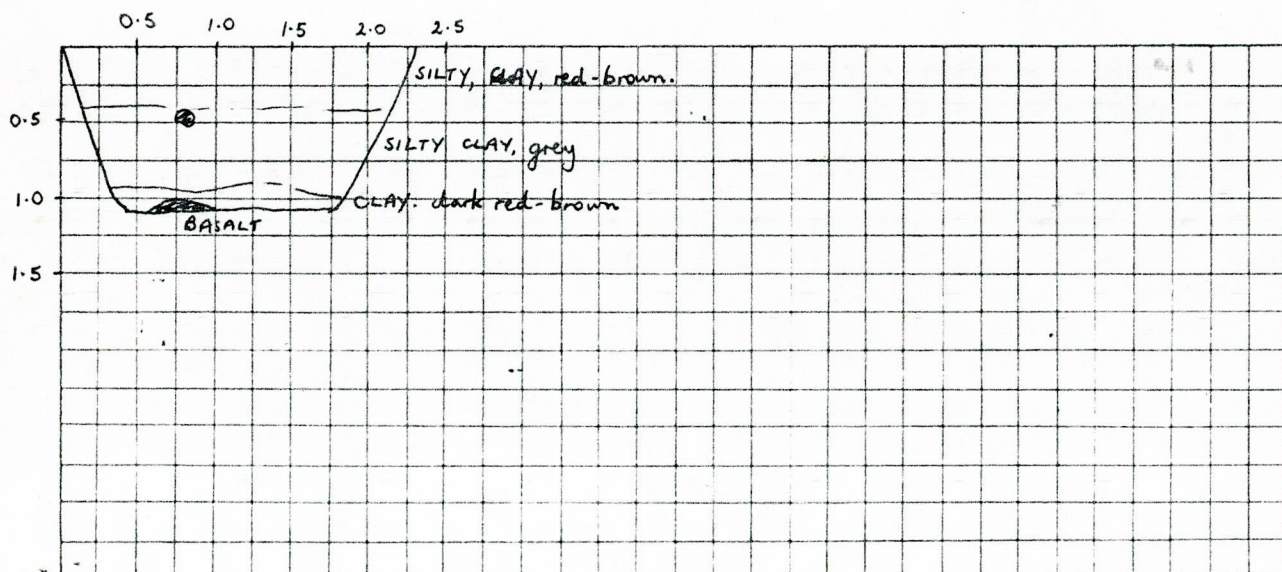 0.5 1.0 1.5 2.0 2.5
SILTY, CLAY, red-brown.
0.5
SILTY CLAY, grey
1.0
CLAY. dark red-brown
BASALT
1.5